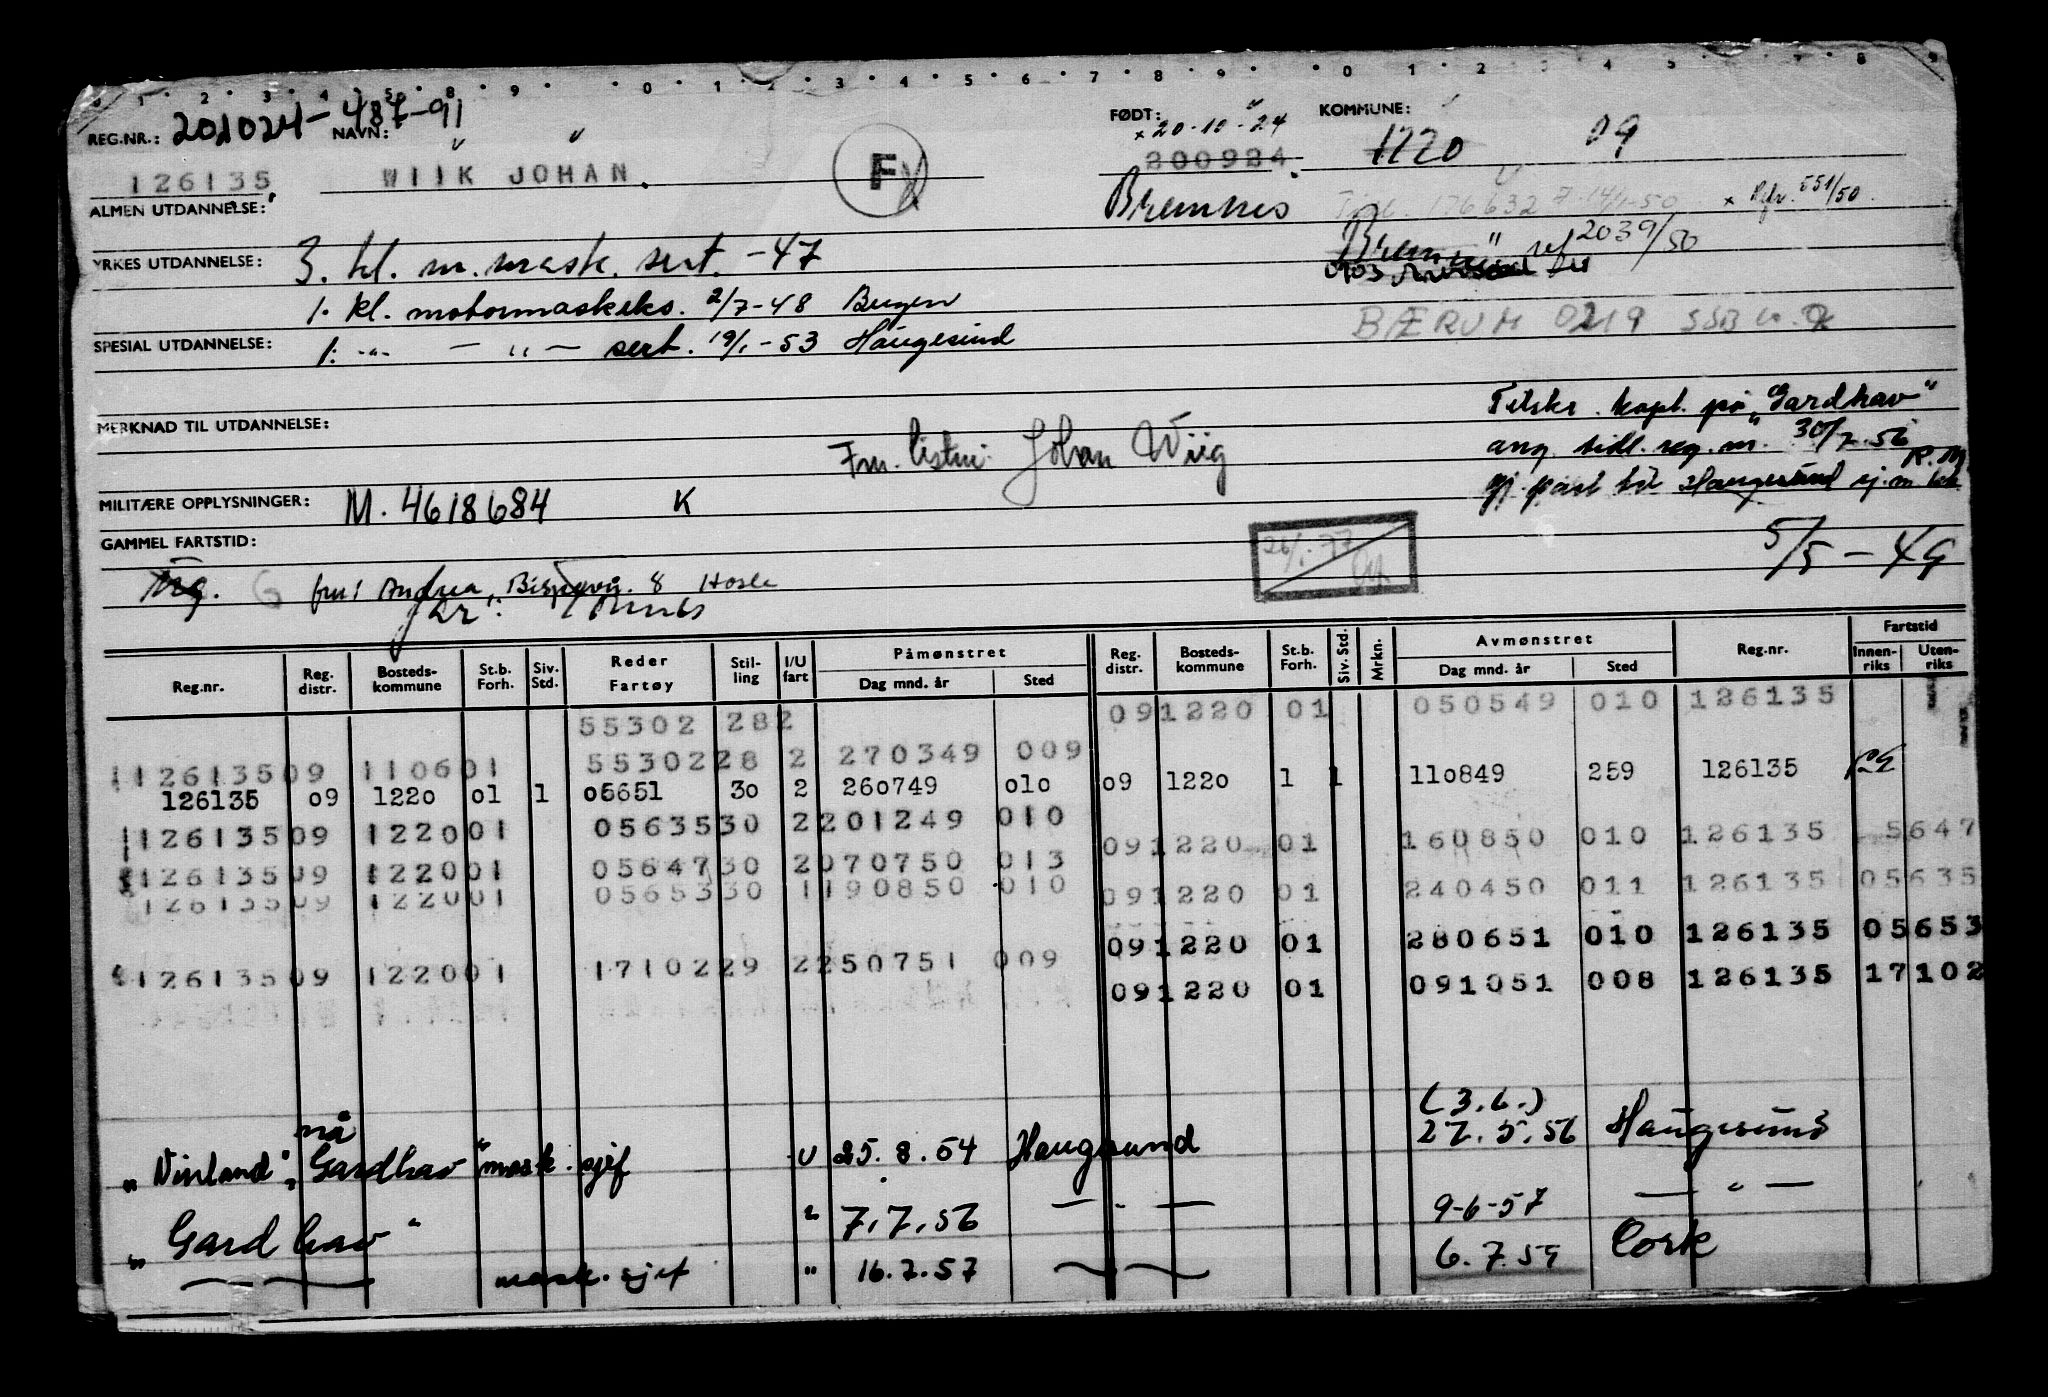 0 1 2 3 4 5 8 9 0 1 2 3 4 5 6 7 8 9 0 1 2 3 4 5 7 8 9
REG.NR.: 201024-487-91 NAVN: FØDT: × 20-10-24 KOMMUNE:
126135 WIIK JOHAN. F 200924 1220 09
ALMEN UTDANNELSE: Bremnes 176632 × 551/50
YRKES UTDANNELSE: 3. kl. m.mask. sert. -47 ref 2039/50
1. kl. motormaskeks. 2/7-48 Bergen
SPESIAL UTDANNELSE: 1. -"- — " — sert. 19/1-53 Haugesund BÆRUM 0219
MERKNAD TIL UTDANNELSE: kapt. på „Gardhav"
Johan Wiig ang. tidl. reg. nr. 30/7.56
MILITÆRE OPPLYSNINGER: M. 4618684 K Haugesund
GAMMEL FARTSTID: 26/1.77 5/5-49
G fru: Andrea, 8 Hosle
Reg.nr. Reg. distr. Bosteds-kommune St.b. Forh. Siv. Std. Reder Fartøy Stil-ling I/U fart Påmønstret Dag mnd. år Sted Reg. distr. Bosteds-kommune St.b. Forh. Siv. Std. Mrkn. Avmønstret Dag mnd. år Sted Reg.nr. Fartstid Innen-riks Uten-riks
55302 28 2 09 1220 01 050549 010 126135
1126135 09 1106 01 55302 28 2 270349 009
126135 09 1220 01 1 05651 30 2 260749 010 09 1220 1 1 110849 259 126135
126135 09 1220 01 05635 30 2 201249 010 09 1220 01 160850 010 126135 5647
126135 09 1220 01 05647 30 2 070750 013
126135 09 1220 01 05653 30 1 190850 010 09 1220 01 240450 011 126135 05635
09 1220 01 280651 010 126135 05653
126135 09 1220 01 17102 29 2 250751 009
09 1220 01 091051 008 126135 17102
(3.6.)
„Vinland", nå „Gardhav" mask. sjef U 25.8.54 Haugesund 27.5.56 Haugesund
„Gardhav" " 7.7.56 — " — 9-6-57 — " —
mask. sjef " 16.7.57 6.7.59 Cork